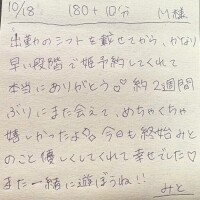 10/18 180+10分 M様
出勤のシフトを載せてから、かなり
早い段階で姫予約してくれて
本当にありがとう♡ 約2週間
ぶりにまた会えて、めちゃくちゃ
嬉しかったよ♡。今日も終始みと
のこと優しくしてくれて幸せでした♡
また一緒に遊ぼうね!!
みと